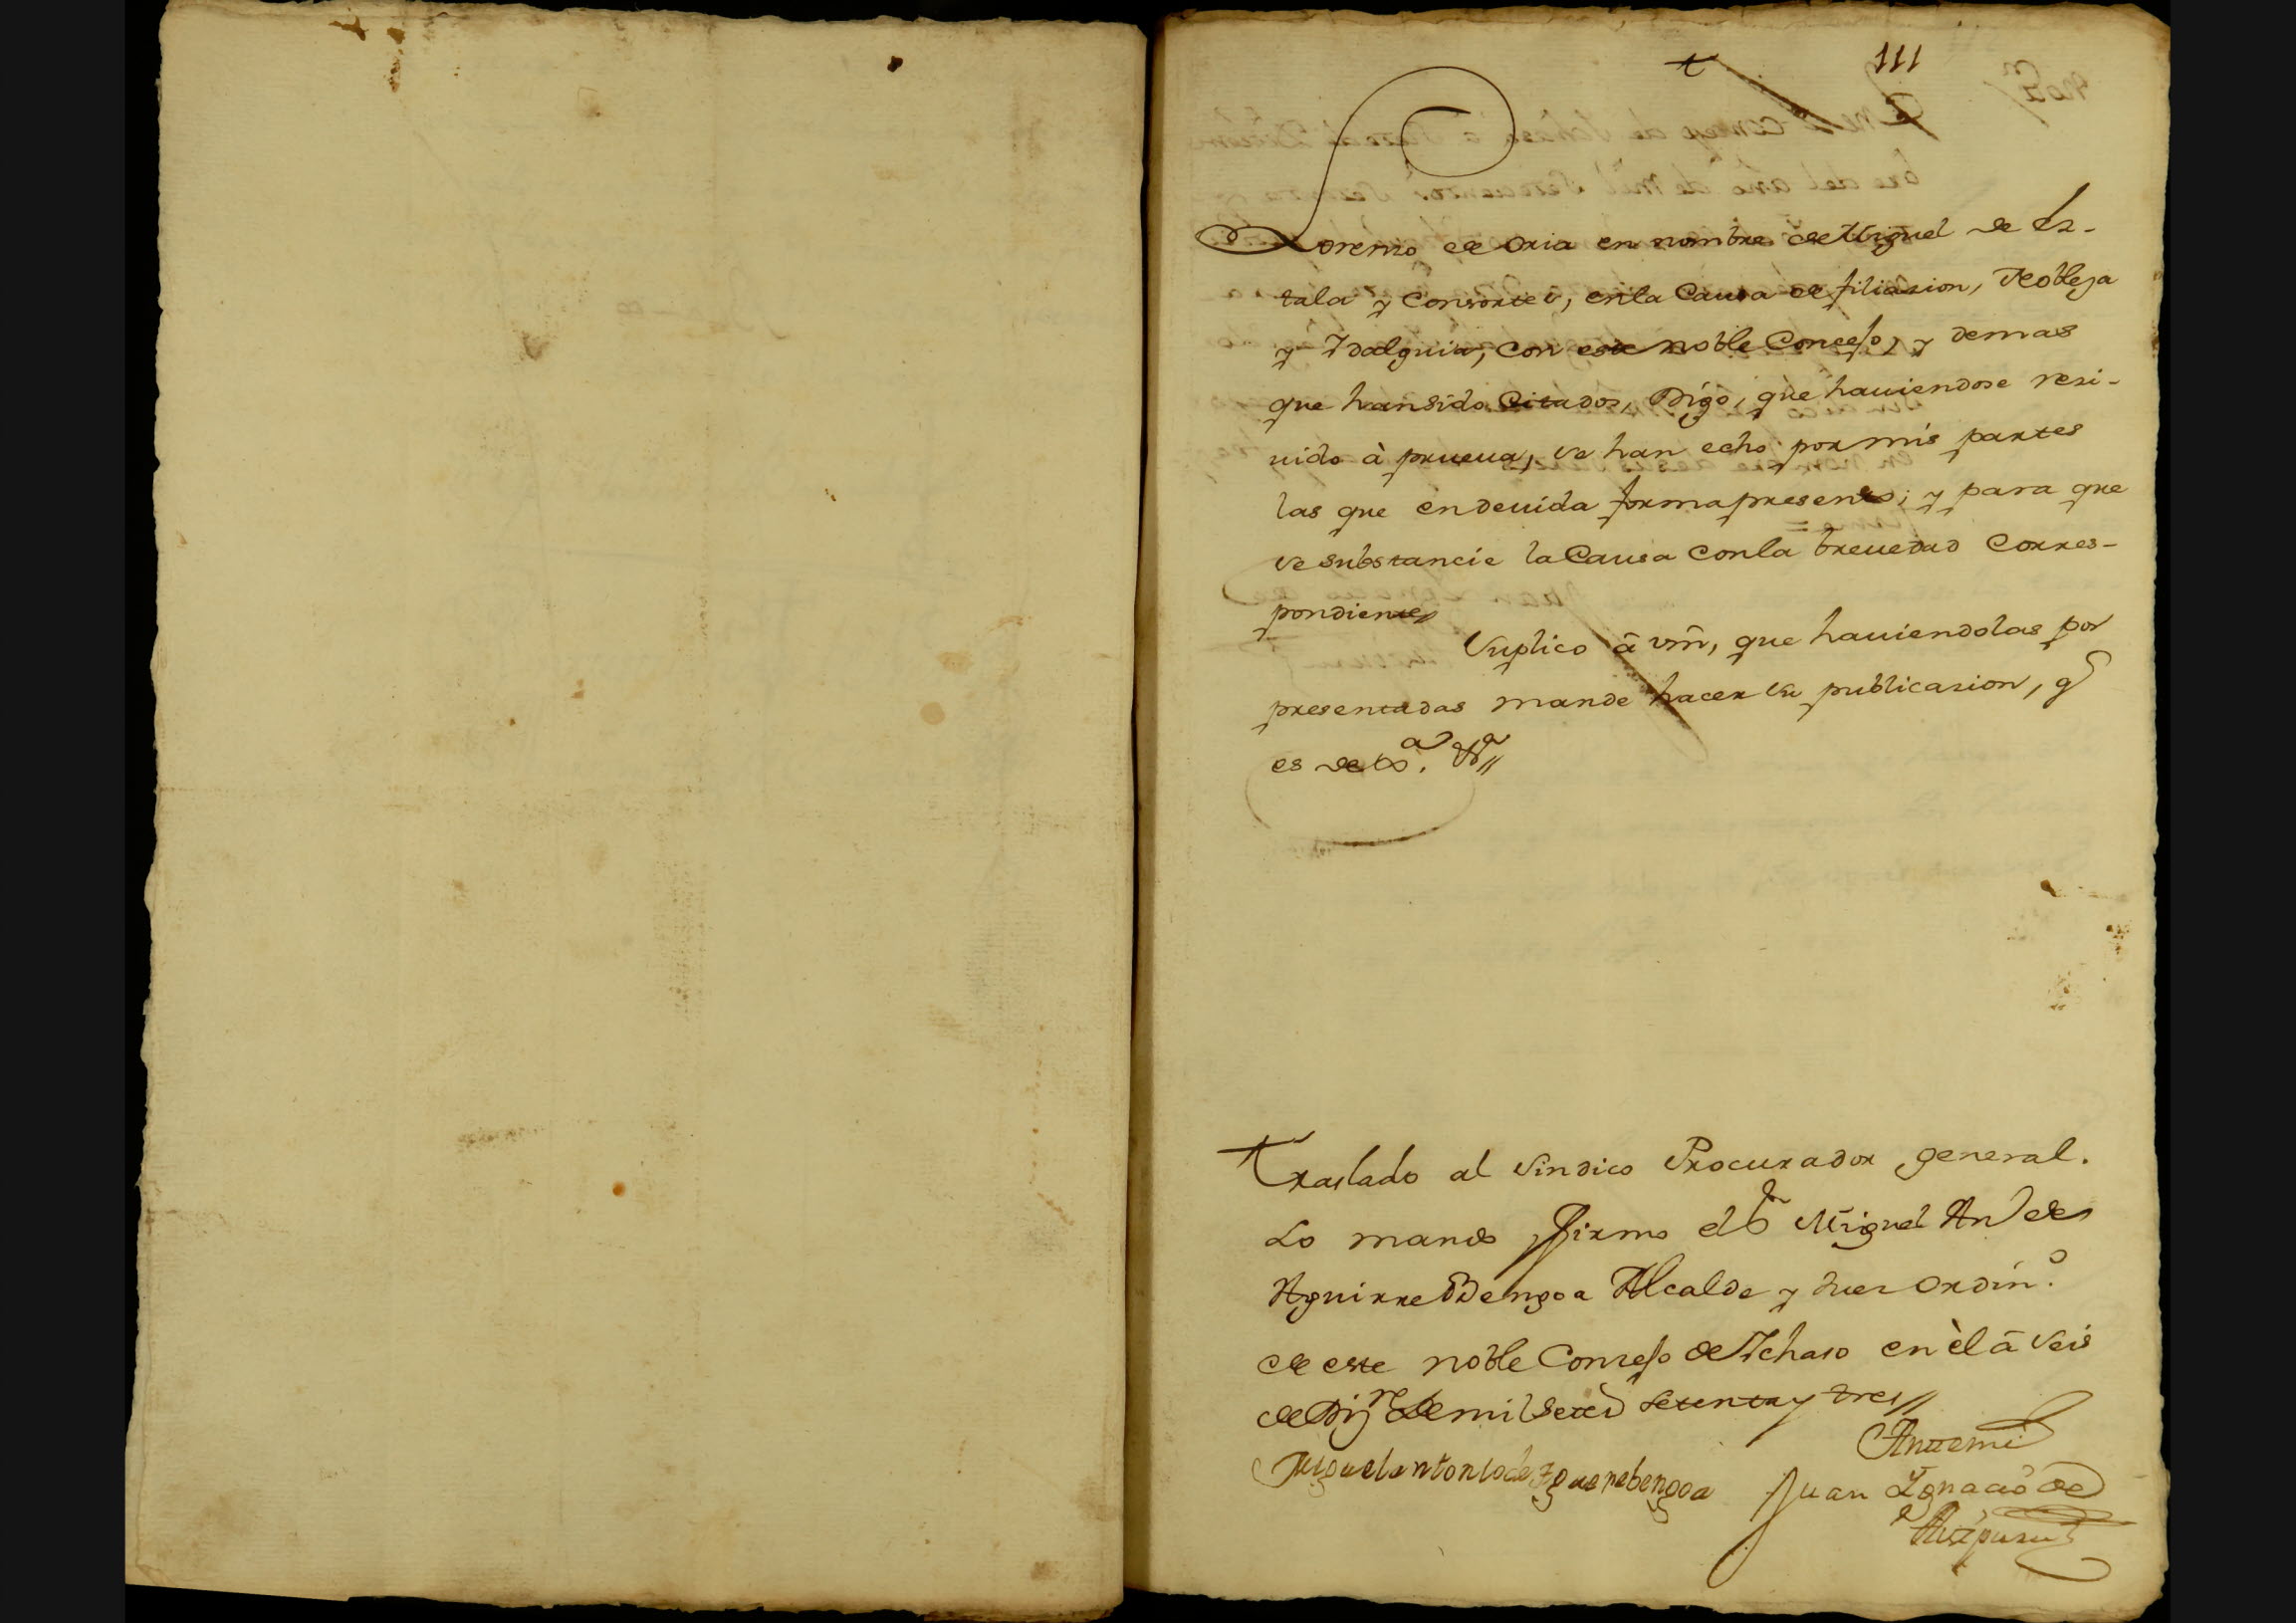 111
Lorenzo de Oria en nombre de Miguel de Es-
tala y Consortes, en la Causa de filiazion, Nobleza
y Idalguia, con este noble Consejo, y demas
que han sido Citados, Digo, què haviendose resi-
vido à prueva, se han echo por mis partes
las que en devida forma presento; y para que
se substancie la Causa con la brevedad Corres-
pondiente//
Suplico â vm̃, que haviendolas por
presentadas mande hacer su publicazion, q
es de
Traslado al Sindico Procurador general.
Lo mando y firmo el Sr Miguel Anto de
Aguirre Bengoa Alcalde y Juez Ordin.o
de este noble Consejo de Ichaso en èl â seis
de Dizre de mil setecs setenta y tres//
Ante mi
Miguel antonio de aguirebengoa Juan Ignacio de